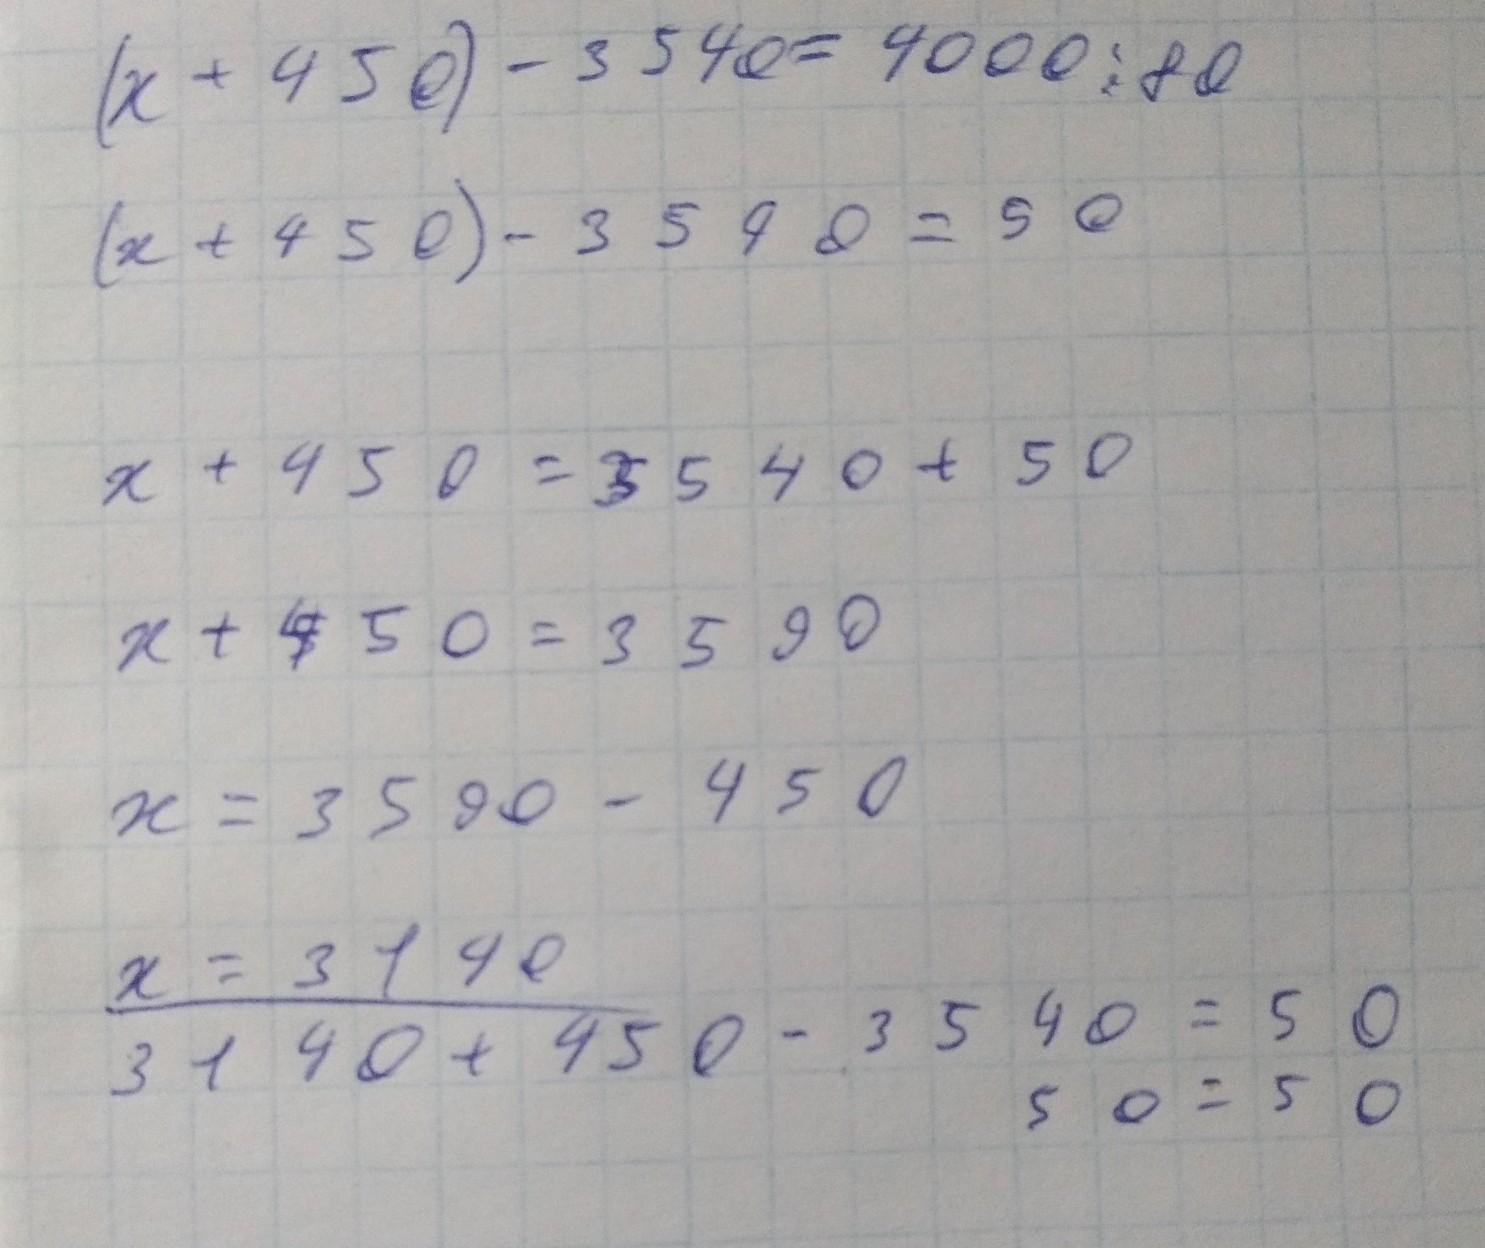 (x + 450) - 3540 = 4000 : 80
(x + 450) - 3540 = 50
x + 450 = 3540 + 50
x + 450 = 3590
x = 3590 - 450
x = 3140
3140 + 450 - 3540 = 50
50 = 50